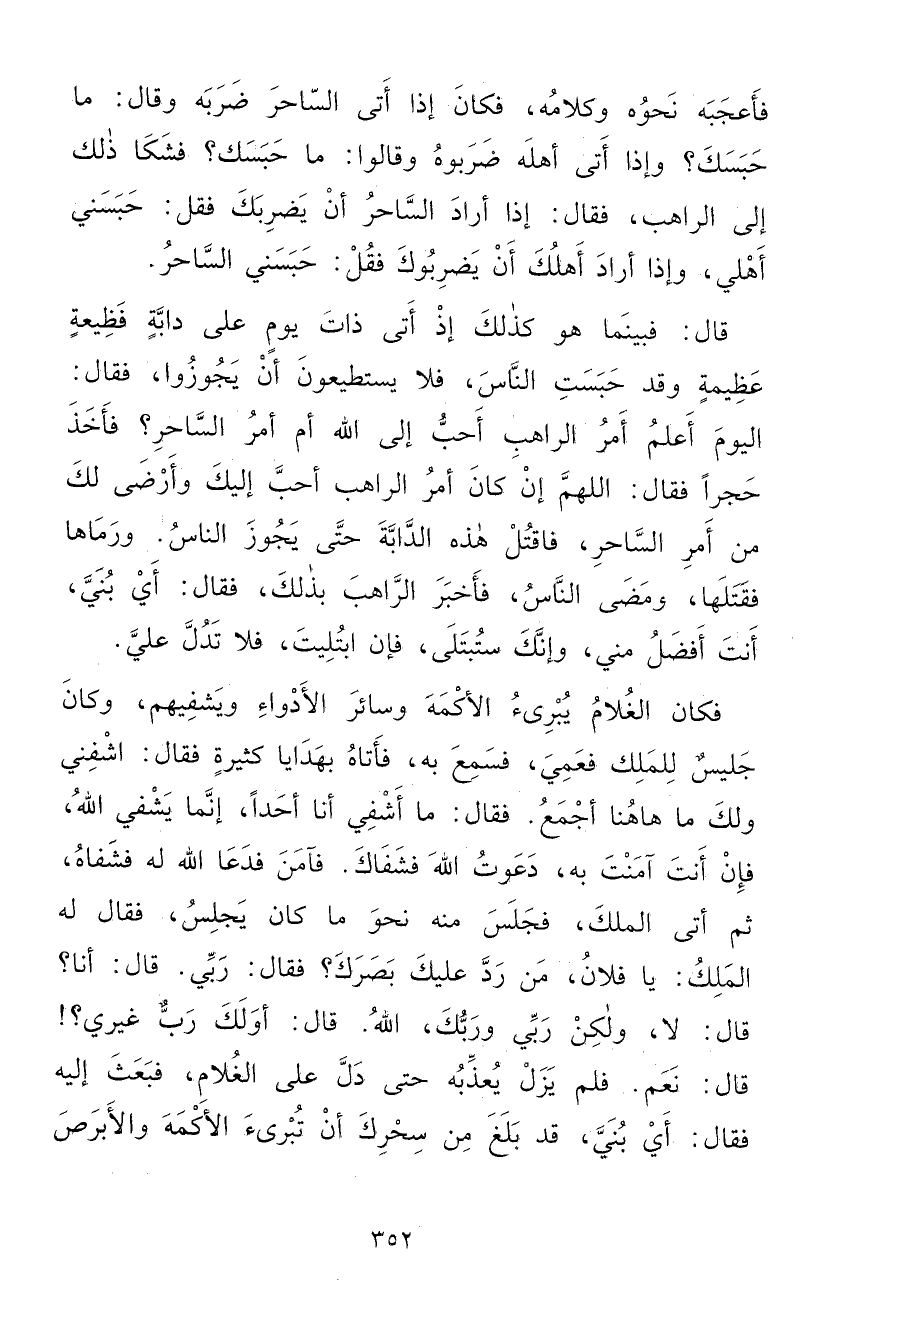 فأَعجَبَه نَحوُه وكلامُه، فكانَ إذا أَتى السّاحرَ ضَرَبَه وقال: ما
حَبَسَكَ؟ وإذا أَتى أهلَه ضَرَبوهُ وقالوا: ما حَبَسَك؟ فشَكَا ذٰلك
إلى الراهب، فقال: إذا أرادَ السَّاحرُ أنْ يَضرِبَكَ فقل: حَبَسَني
أَهْلي، وإذا أرادَ أَهلُكَ أَنْ يَضرِبُوكَ فقُلْ: حَبَسَني السَّاحرُ.
قال: فبينَما هو كذٰلكَ إذْ أَتى ذاتَ يومٍ على دابَّةٍ فَظِيعةٍ
عَظِيمةٍ وقد حَبَسَتِ النَّاسَ، فلا يستطيعونَ أنْ يَجُوزُوا، فقال:
اليومَ أَعلمُ أَمرُ الراهبِ أَحبُّ إلى الله أم أمرُ السَّاحرِ؟ فأَخَذَ
حَجراً فقال: اللهمَّ إنْ كانَ أمرُ الراهب أحبَّ إليكَ وأَرْضَى لكَ
من أَمرِ السَّاحرِ، فاقتُلْ هٰذه الدَّابَّةَ حتَّى يَجُوزَ الناسُ. ورَمَاها
فقَتَلَها، ومَضَى النَّاسُ، فأَخبَرَ الرَّاهبَ بذٰلكَ، فقال: أَيْ بُنَيَّ،
أَنتَ أَفضَلُ مني، وإنَّكَ ستُبتَلَى، فإن ابتُلِيتَ، فلا تَدُلَّ عليَّ.
فكان الغُلامُ يُبْرِىءُ الأكْمَهَ وسائرَ الأَدْواءِ ويَشفِيهم، وكانَ
جَليسٌ لِلمَلِك فعَمِيَ، فسَمِعَ به، فأَتاهُ بهَدَايا كثيرةٍ فقال: اشْفِني
ولكَ ما هاهُنا أجْمَعُ. فقال: ما أَشْفِي أنا أحَداً، إنَّما يَشْفي اللهُ،
فإِنْ أَنتَ آمَنْتَ به، دَعَوتُ اللهَ فشَفَاكَ. فآمَنَ فدَعَا الله له فشَفاهُ،
ثم أتى الملكَ، فجَلَسَ منه نحوَ ما كان يَجلِسُ، فقال له
المَلِكُ: يا فلانُ، مَن رَدَّ عليكَ بَصَرَكَ؟ فقال: رَبِّي. قال: أنا؟
قال: لا، ولٰكِنْ رَبِّي ورَبُّكَ، اللهُ. قال: أوَلَكَ رَبٌّ غيري؟!
قال: نَعَم. فلم يَزَلْ يُعذِّبُه حتى دَلَّ على الغُلامِ، فبَعَثَ إليه
فقال: أَيْ بُنَيَّ، قد بَلَغَ مِن سِحْرِكَ أنْ تُبْرىءَ الأَكْمَهَ والأَبرَصَ
٣٥٢